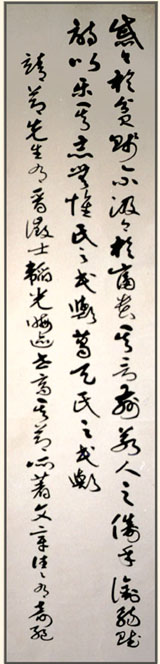 戚戚於貧賤不汲汲於富貴其言茲若人之儔乎銜觴賦
詩以樂其志無懷氏之民歟葛天氏之民歟
靖節先生為晉徵士韜光晦迹高其節著文章